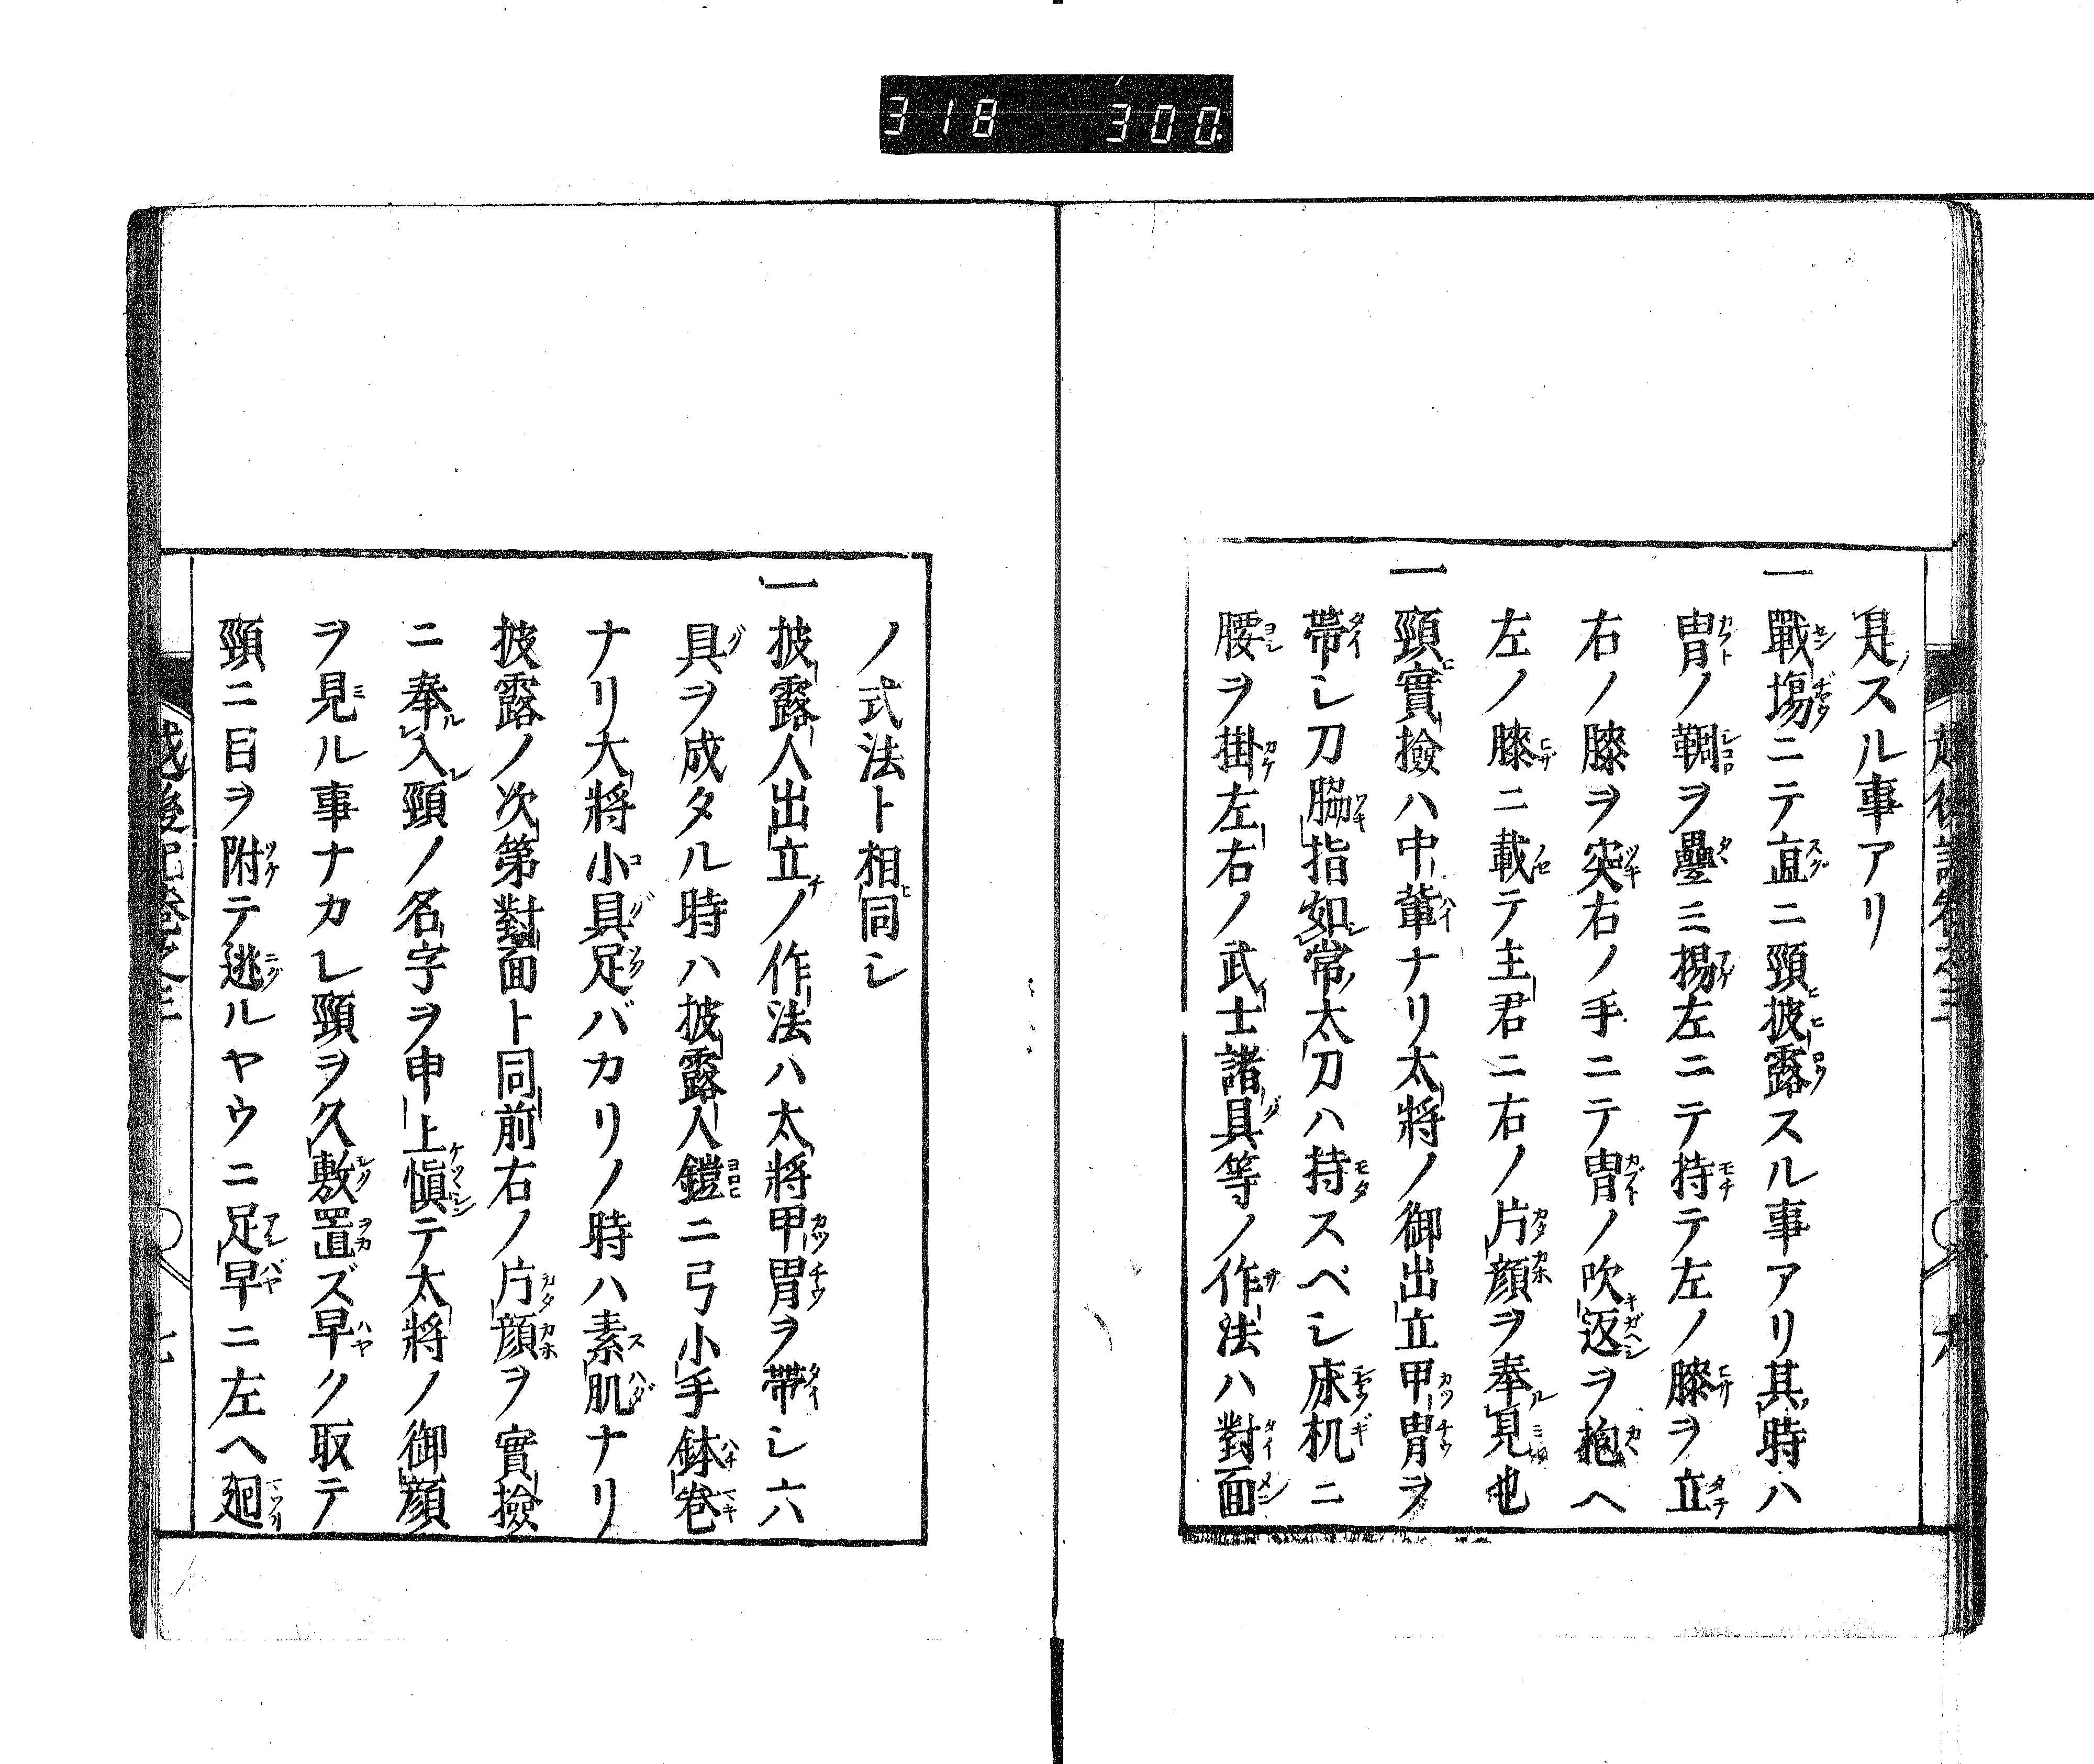 318 300.
是スル事アリ
一戰場ニテ直ニ頸披露スル事アリ其時ハ
冑ノ鞠ヲ疊ミ揚左ニテ持テ左ノ膝ヲ立
右ノ膝ヲ突右ノ手ニテ冑ノ吹返ヲ抱ヘ
左ノ膝ニ載テ主君ニ右ノ片顔ヲ奉見也
一頸實撿ハ中輩ナリ太將ノ御出立甲冑ヲ
帶シ刀脇指如常太刀ハ持スベシ床机ニ
腰ヲ掛左右ノ武士諸具等ノ作法ハ對面
ノ式法ト相同シ
一披露人出立ノ作法ハ太將甲冑ヲ帶シ六
具ヲ成タル時ハ披露人鎧ニ弓小手鉢卷
ナリ大將小具足バカリノ時ハ素肌ナリ
披露ノ次第對面ト同前右ノ片顔ヲ實撿
ニ奉入頸ノ名字ヲ申上愼テ太將ノ御顔
ヲ見ル事ナカレ頸ヲ久敷置ズ早ク取テ
頸ニ目ヲ附テ逃ルヤウニ足早ニ左ヘ廻